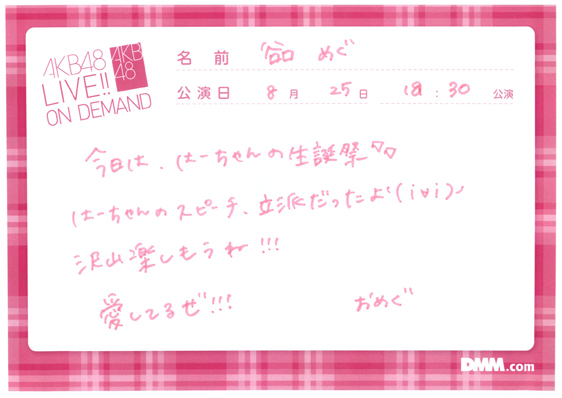 AKB48
LIVE!!
ON DEMAND
AKB
48
名前 谷口 めぐ
公演日 8月 25日 18:30 公演
今日は、はーちゃんの生誕祭♡♡
はーちゃんのスピーチ、立派だったよ(i∀i)♪
沢山楽しもうね!!!
愛してるぜ!!!
おめぐ
DMM.com